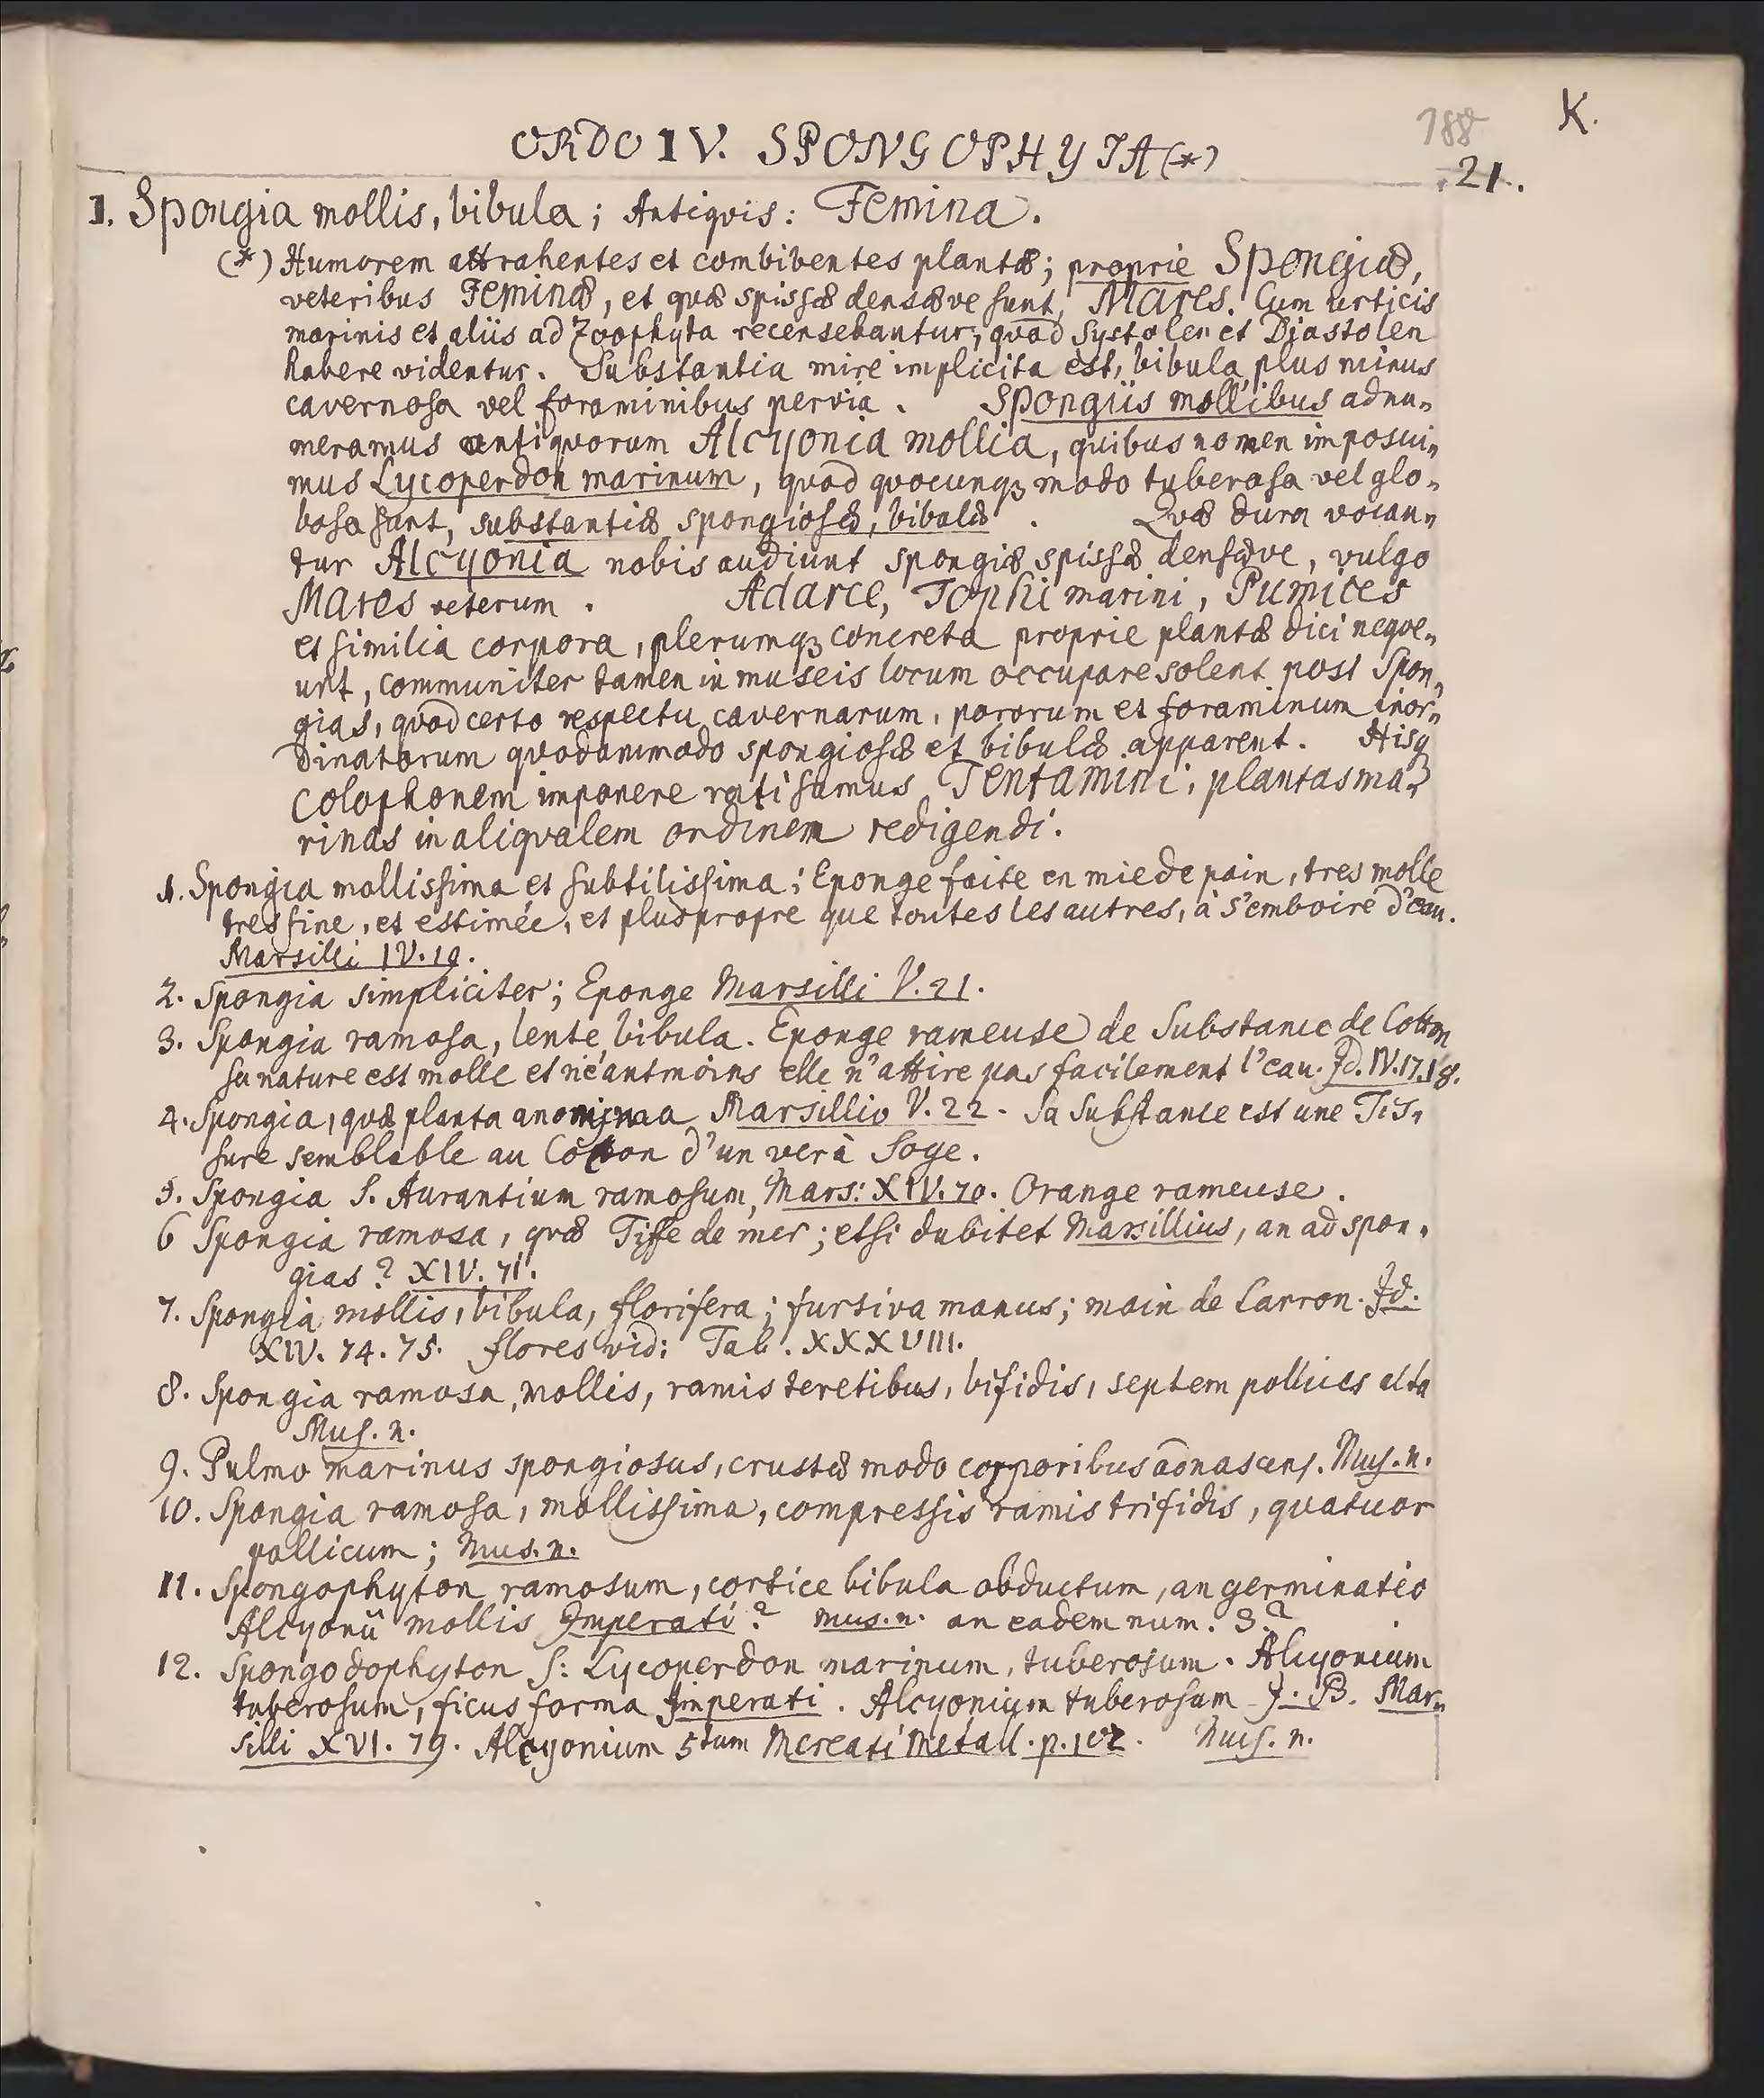 188 K.
ORDO IV. SPONGOPHYTA (*)
21.
1. Spongia mollis, bibula; Antiqvis: Femina.
(*) Humorem attrahentes et combibentes plantæ; proprie Spongiæ,
veteribus Feminæ, et qvæ spissæ densæve sunt, Mares. Cum urticis
marinis et aliis ad Zoophyta recensebantur, qvod Systolen et Diastolen
habere videntur. Substantia mire implicita est, bibula, plus minus
cavernosa vel foraminibus pervia. Spongiis mollibus adnu-
meramus antiqvorum Alcyonia mollia, quibus nomen imposui-
mus Lycoperdon marinum, qvod qvocunqꝫ modo tuberosa vel glo-
bosa sunt, substantiæ spongiosæ, bibulæ. Qvæ dura vocan-
tur Alcyonia nobis audiunt spongiæ spissæ densæve, vulgo
Mares veterum. Adarce, Tophi marini, Pumices
et similia corpora, plerumqꝫ concreta proprie plantæ dici neqve-
unt, communiter tamen in museis locum occupare solent post Spon-
gias, qvod certo respectu cavernarum, pororum et foraminum inor-
dinatorum qvodammodo spongiosæ et bibulæ apparent. Hisqꝫ
Colophonem imponere rati sumus Tentamini, plantas ma-
rinas in aliqvalem ordinem redigendi.
1. Spongia mollissima et subtilissima; Eponge faite en mie de pain, tres molle
tres fine, et estimée, et plus propre que toutes les autres, à s'emboire d'eau.
Marsilli IV. 19.
2. Spongia simpliciter; Eponge Marsilli V. 21.
3. Spongia ramosa, lente bibula. Eponge rameuse de Substance de Cotton
sa nature est molle et néantmoins elle n'attire pas facilement l'eau. Id. IV. 17.18.
4. Spongia, qvæ planta anonyma Marsillio V. 22. Sa Substance est une Tis-
sure semblable au Cotton d'un ver à Soye.
5. Spongia s. Aurantium ramosum, Mars: XIV. 70. Orange rameuse.
6 Spongia ramosa, qvæ Tiffe de mer; etsi dubitet Marsillius, an ad spon-
gias? XIV. 71.
7. Spongia mollis, bibula, florifera; furtiva manus; main de Larron. Id.
XIV. 74. 75. flores vid: Tab. XXXVIII.
8. Spongia ramosa, mollis, ramis teretibus, bifidis, septem pollices alta
Mus. n.
9. Pulmo marinus spongiosus, crustæ modo corporibus adnascens. Mus. n.
10. Spongia ramosa, mollissima, compressis ramis trifidis, quatuor
pollicum; Mus. n.
11. Spongophyton ramosum, cortice bibula obductum, an germinatio
Alcyonii mollis Imperati? mus. n. an eadem num. 3?
12. Spongodophyton s: Lycoperdon marinum, tuberosum. Alcyonium
tuberosum, ficus forma Imperati. Alcyonium tuberosum J. B. Mar-
silli XVI. 79. Alcyonium 5tum Mercati Metall. p. 102. Mus. n.